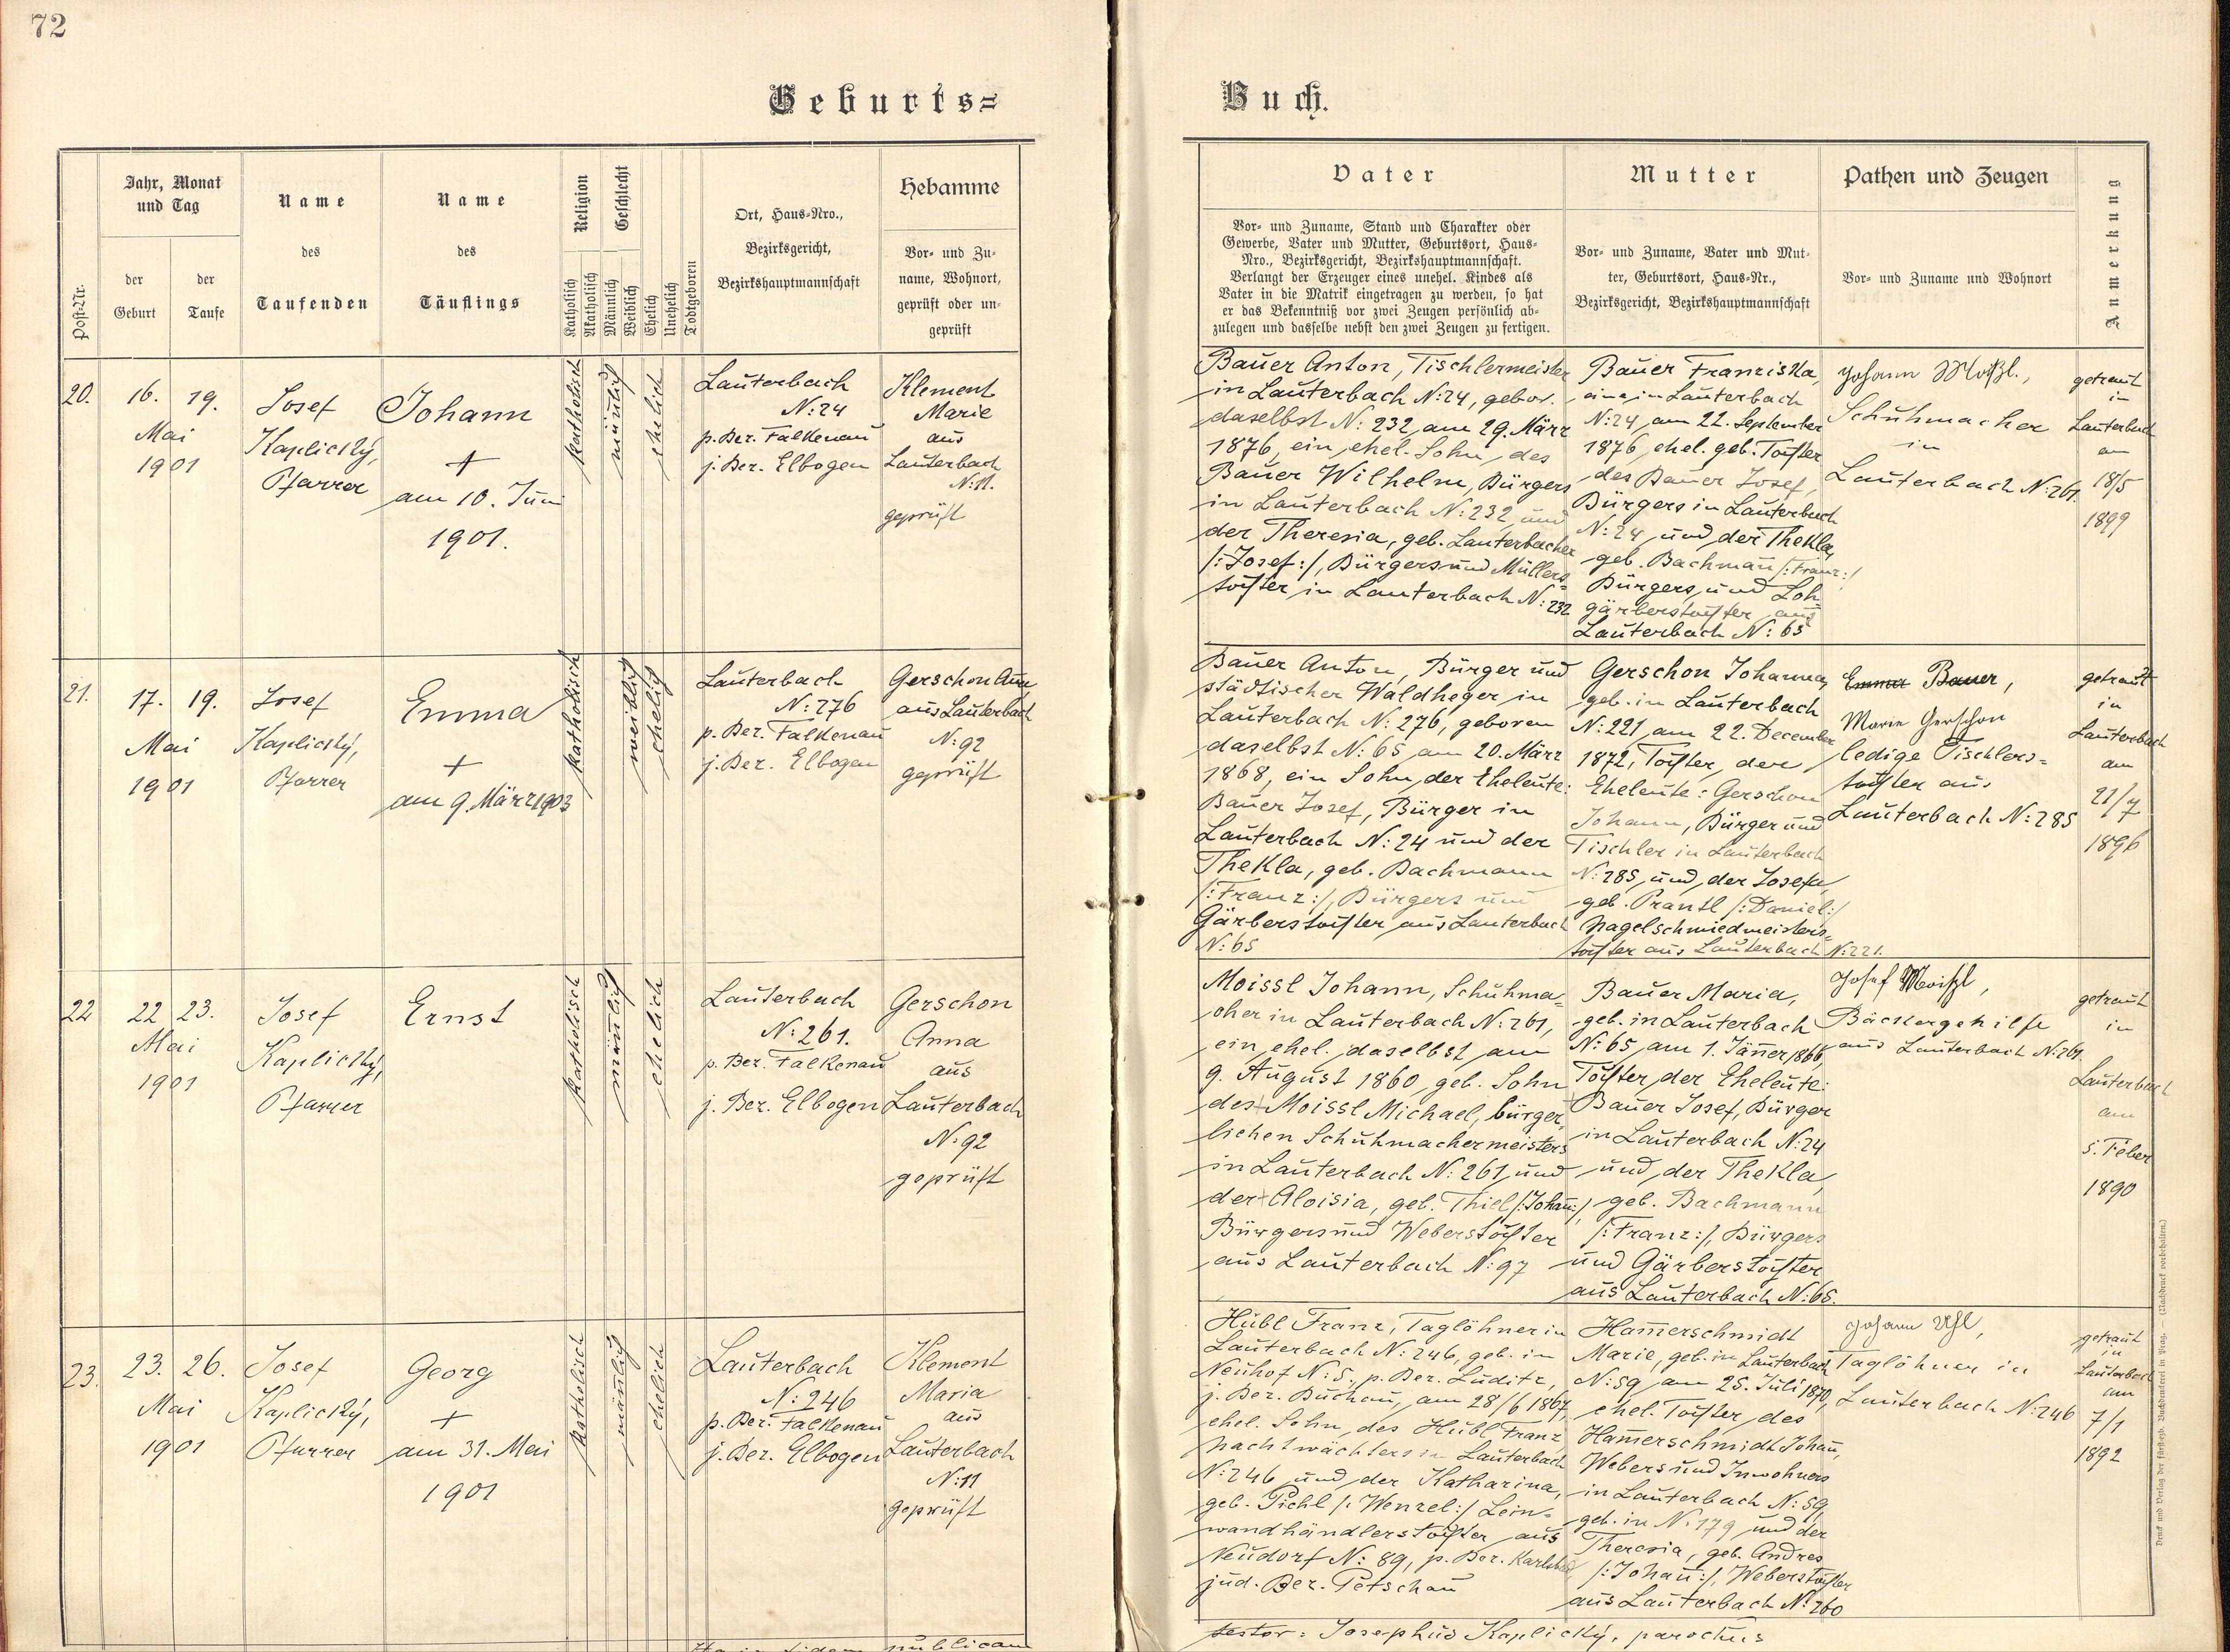 72
Geburts=
Buch.
Post-Nr.
Jahr, Monat
und Tag
der
Geburt
der
Taufe
Name
des
Taufenden
Name
des
Täuflings
Religion
Katholisch
Akatholisch
Geschlecht
Männlich
Weiblich
Ehelich
Unehelich
Todtgeboren
Ort, Haus-Nro.,
Bezirksgericht,
Bezirkshauptmannschaft
Hebamme
Vor- und Zu-
name, Wohnort,
geprüft oder un-
geprüft
Vater
Vor- und Zuname, Stand und Charakter oder
Gewerbe, Vater und Mutter, Geburtsort, Haus-
Nro., Bezirksgericht, Bezirkshauptmannschaft.
Verlangt der Erzeuger eines unehel. Kindes als
Vater in die Matrik eingetragen zu werden, so hat
er das Bekenntniß vor zwei Zeugen persönlich ab-
zulegen und dasselbe nebst den zwei Zeugen zu fertigen.
Mutter
Vor- und Zuname, Vater und Mut-
ter, Geburtsort, Haus-Nr.,
Bezirksgericht, Bezirkshauptmannschaft
Pathen und Zeugen
Vor- und Zuname und Wohnort
Anmerkung
20.
16. 19.
Mai
1901
Josef
Kaplický,
Pfarrer
Johann
+
am 10. Juni
1901.
katholisch
männlich
ehelich
Lauterbach
N: 24
p. Bez. Falkenau
j. Bez. Elbogen
Klement
Marie
aus
Lauterbach
N: 11.
geprüft
Bauer Anton, Tischlermeister
in Lauterbach N: 24, gebor.
daselbst N: 232, am 29. März
1876, ein ehel. Sohn des
Bauer Wilhelm, Bürgers
in Lauterbach N: 232, und
der Theresia, geb. Lauterbacher
/: Josef :/, Bürgers und Müllers=
tochter in Lauterbach N: 232
Bauer Franziska,
eine in Lauterbach
N: 24 am 22. September
1876, ehel. geb. Tochter
des Bauer Josef,
Bürgers in Lauterbach
N: 24 und der Thekla,
geb. Bachman̄ /: Franz :/
Bürgers und Loh
gärberstochter aus
Lauterbach N: 65
Johann Moißl.,
Schuhmacher
in
Lauterbach N: 261.
getraut
in
Lauterbach
am
18/5
1899
21.
17. 19.
Mai
1901
Josef
Kaplický,
Pfarrer
Emma
+
am 9. März 1903
katholisch
weiblich
ehelich
Lauterbach
N: 276
p. Bez. Falkenau
j. Bez. Elbogen
Gerschon Anna
aus Lauterbach
N: 92
geprüft
Bauer Anton, Bürger und
städtischer Waldheger in
Lauterbach N: 276, geboren
daselbst N: 65 am 20. März
1868, ein Sohn der Eheleute:
Bauer Josef, Bürger in
Lauterbach N: 24 und der
Thekla, geb. Bachmann
/: Franz :/, Bürgers und
Gärberstochter aus Lauterbach
N: 65
Gerschon Johanna,
geb. in Lauterbach
N: 221 am 22. December
1872, Tochter der
Eheleute: Gerschon
Johann, Bürger und
Tischler in Lauterbach
N: 285, und der Josefa,
geb. Prantl /: Daniel :/
Nagelschmiedmeisters=
tochter aus Lauterbach N: 221.
Emma Bauer,
Marie Gerschon
ledige Tischlers=
tochter aus
Lauterbach N: 285
getraut
in
Lauterbach
am
21/7
1896
22
22 23.
Mai
1901
Josef
Kaplický,
Pfarrer
Ernst
katholisch
männlich
ehelich
Lauterbach
N: 261.
p. Bez. Falkenau
j. Bez. Elbogen
Gerschon
Anna
aus
Lauterbach
N: 92
geprüft
Moissl Johann, Schuhma=
cher in Lauterbach N: 261,
ein ehel. daselbst am
9. August 1860 geb. Sohn
des + Moissl Michael, bürger=
lichen Schuhmachermeisters
in Lauterbach N: 261, und
der + Aloisia, geb. Thiel /: Johan̄ :/,
Bürgers und Weberstochter
aus Lauterbach N: 97
Bauer Maria,
geb. in Lauterbach
N: 65 am 1. Jän̄er 1866,
Tochter der Eheleute:
Bauer Josef, Bürger
in Lauterbach N: 24
und der Thekla,
geb. Bachmann
/: Franz :/, Bürgers
und Gärberstochter
aus Lauterbach N: 65.
Josef Moißl,
Bäckergehilfe
aus Lauterbach N: 261.
getraut
in
Lauterbach
am
5. Feber
1890
23.
23. 26.
Mai
1901
Josef
Kaplický,
Pfarrer
Georg
+
am 31. Mai
1901
katholisch
männlich
ehelich
Lauterbach
N: 246
p. Bez. Falkenau
j. Bez. Elbogen
Klement
Maria
aus
Lauterbach
N: 11
geprüft
Hübl Franz, Taglöhner in
Lauterbach N: 246, geb. in
Neuhof N: 5, p. Bez. Luditz,
j. Bez. Buchau, am 28/6 1867,
ehel. Sohn des Hübl Franz
Nachtwächters in Lauterbach
N: 246 und der Katharina,
geb. Pichl /: Wenzel :/ Lein=
wandhändlerstochter aus
Neudorf N: 89, p. Bez. Karlsbad,
jud. Bez. Petschau
Ham̄erschmidt
Marie, geb. in Lauterbach
N: 59 am 25. Juli 1870,
ehel. Tochter des
Ham̄erschmidt Johan̄,
Webers und Inwohners
in Lauterbach N: 59,
geb. in N: 179 und der
Theresia, geb. Andres
/: Johan̄ :/, Weberstochter
aus Lauterbach N: 260
Johann Uhl,
Taglöhner in
Lauterbach N: 246
getraut
in
Lauterbach
am
7/1
1892
Ita in fidem publicam
testor: Josephus Kaplický, parochus
Druck und Verlag der fürsterzb. Buchdruckerei in Prag. — (Nachdruck vorbehalten.)